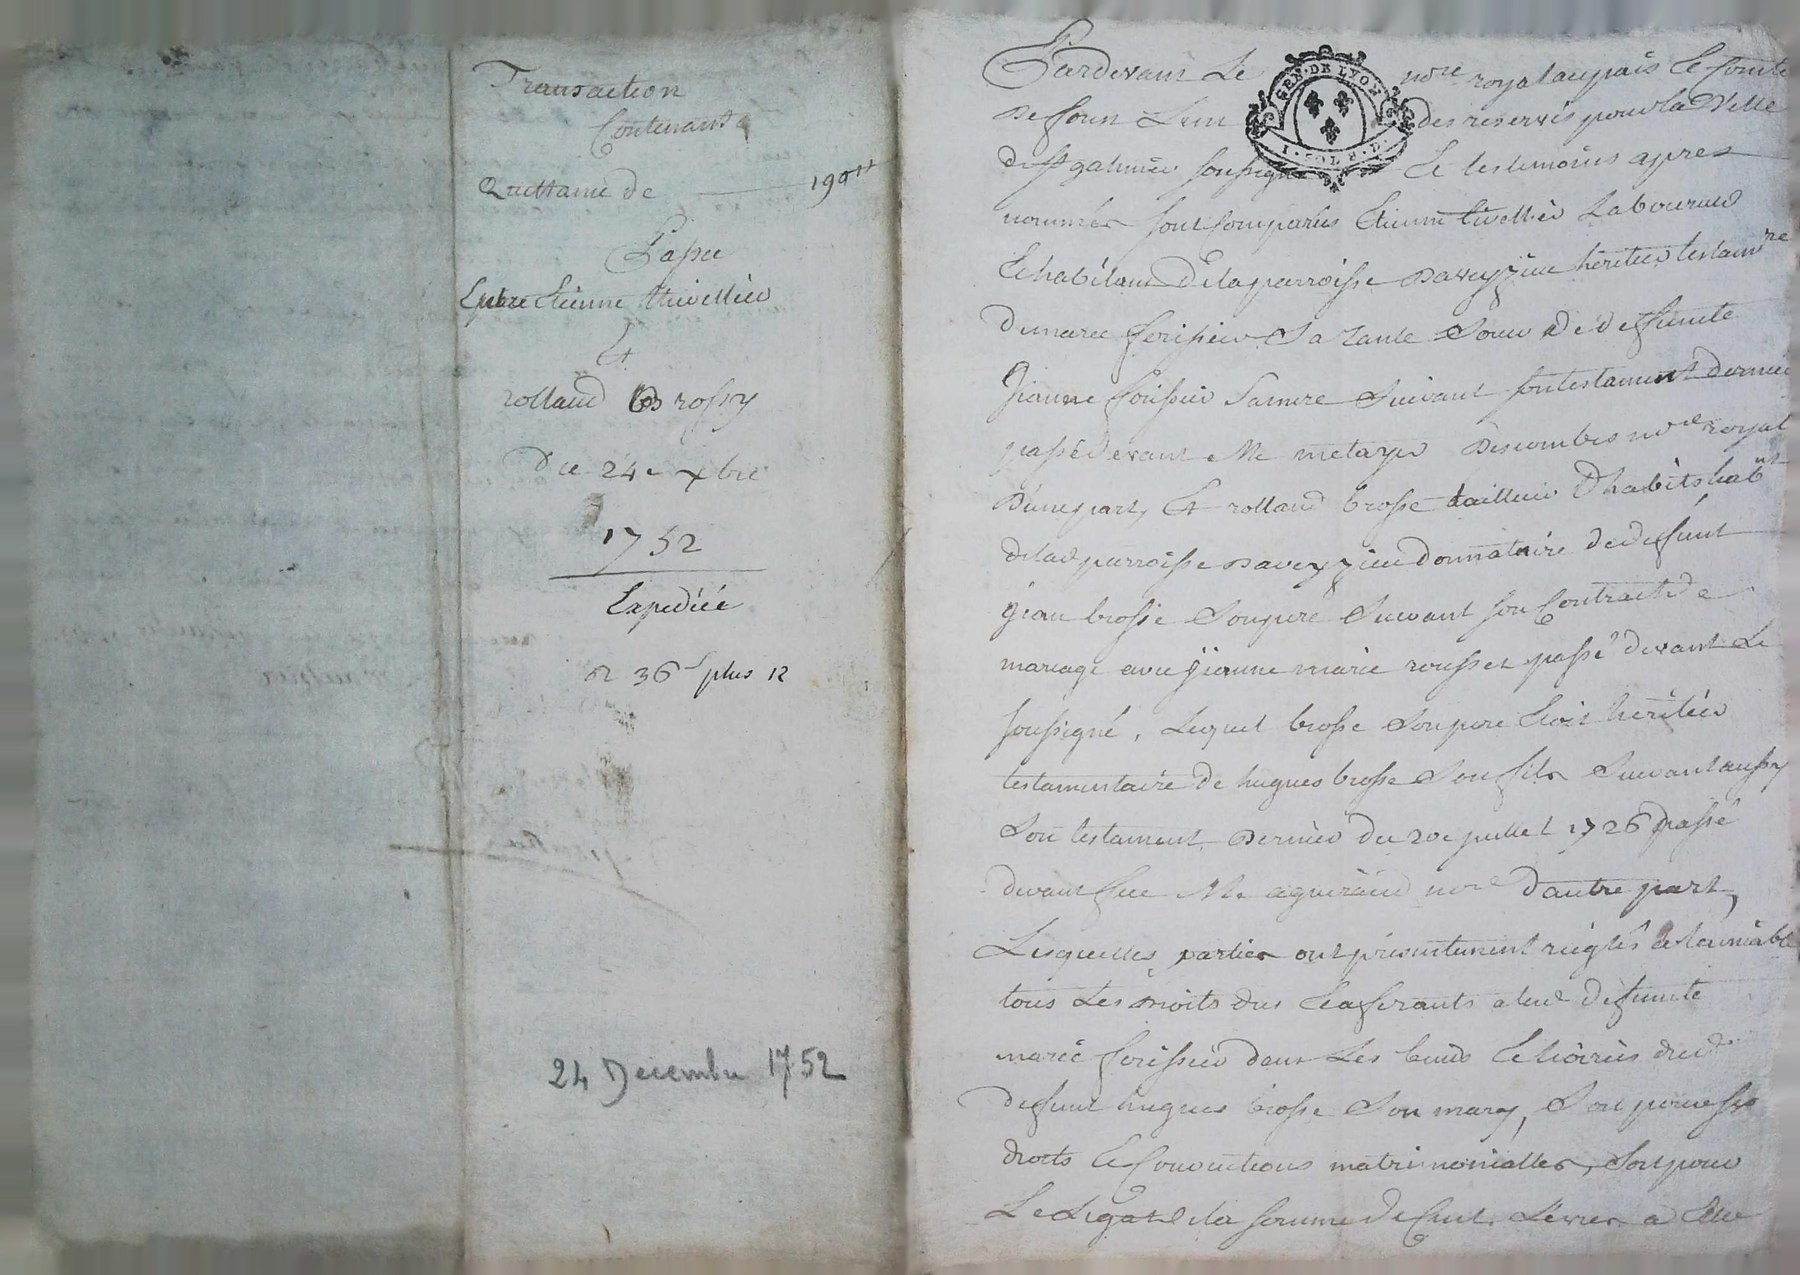 Transaction
Contenant
Quittance de 190lt
Passée
Entre Etienne thivellier
Et
rolland Brossy
Du 24e xbre
1752
Expediée
plus 12
24 Decembre 1752
GEN. DE LYON
Pardevant Le nore royal au païs Et Comté
De forest L'un des reservés pour la Ville
de St galmier soussigné Et les temoins apres
nommés sont Comparus Etienne thivellier Laboureur
Et habitant De la parroisse Daveyzieu héritier testamre
De marie forissier Sa Tante Soeur De deffunte
Jeanne forissier Sa mere Suivant son testament dernier
passé devant Me metayer Descombes nore royal
D'une part, Et rolland brosse tailleur d'habits habnt
de lad parroisse Daveyzieu donnataire de deffunt
jean brosse Son pere Suivant son Contract de
mariage avec jeanne marie rousset passé devant Le
soussigné, Lequel brosse Son pere Etoit héritier
testamentaire de hugues brosse Son fils Suivant aussy
Son testament Dernier du 20e juillet 1726 passé
devant feu Me nore d'autre part,
Lesquelles parties ont présentement réglés à l'amiable
tous Les Droits dus Et afferants a lad deffunte
marie forissier dans Les biens Et hoiries dud
deffunt hugues brosse Son mary, Soit pour Ses
droits Et Conventions matrimonialles, Soit pour
Le Legat de la somme de Cent Livres a Elle